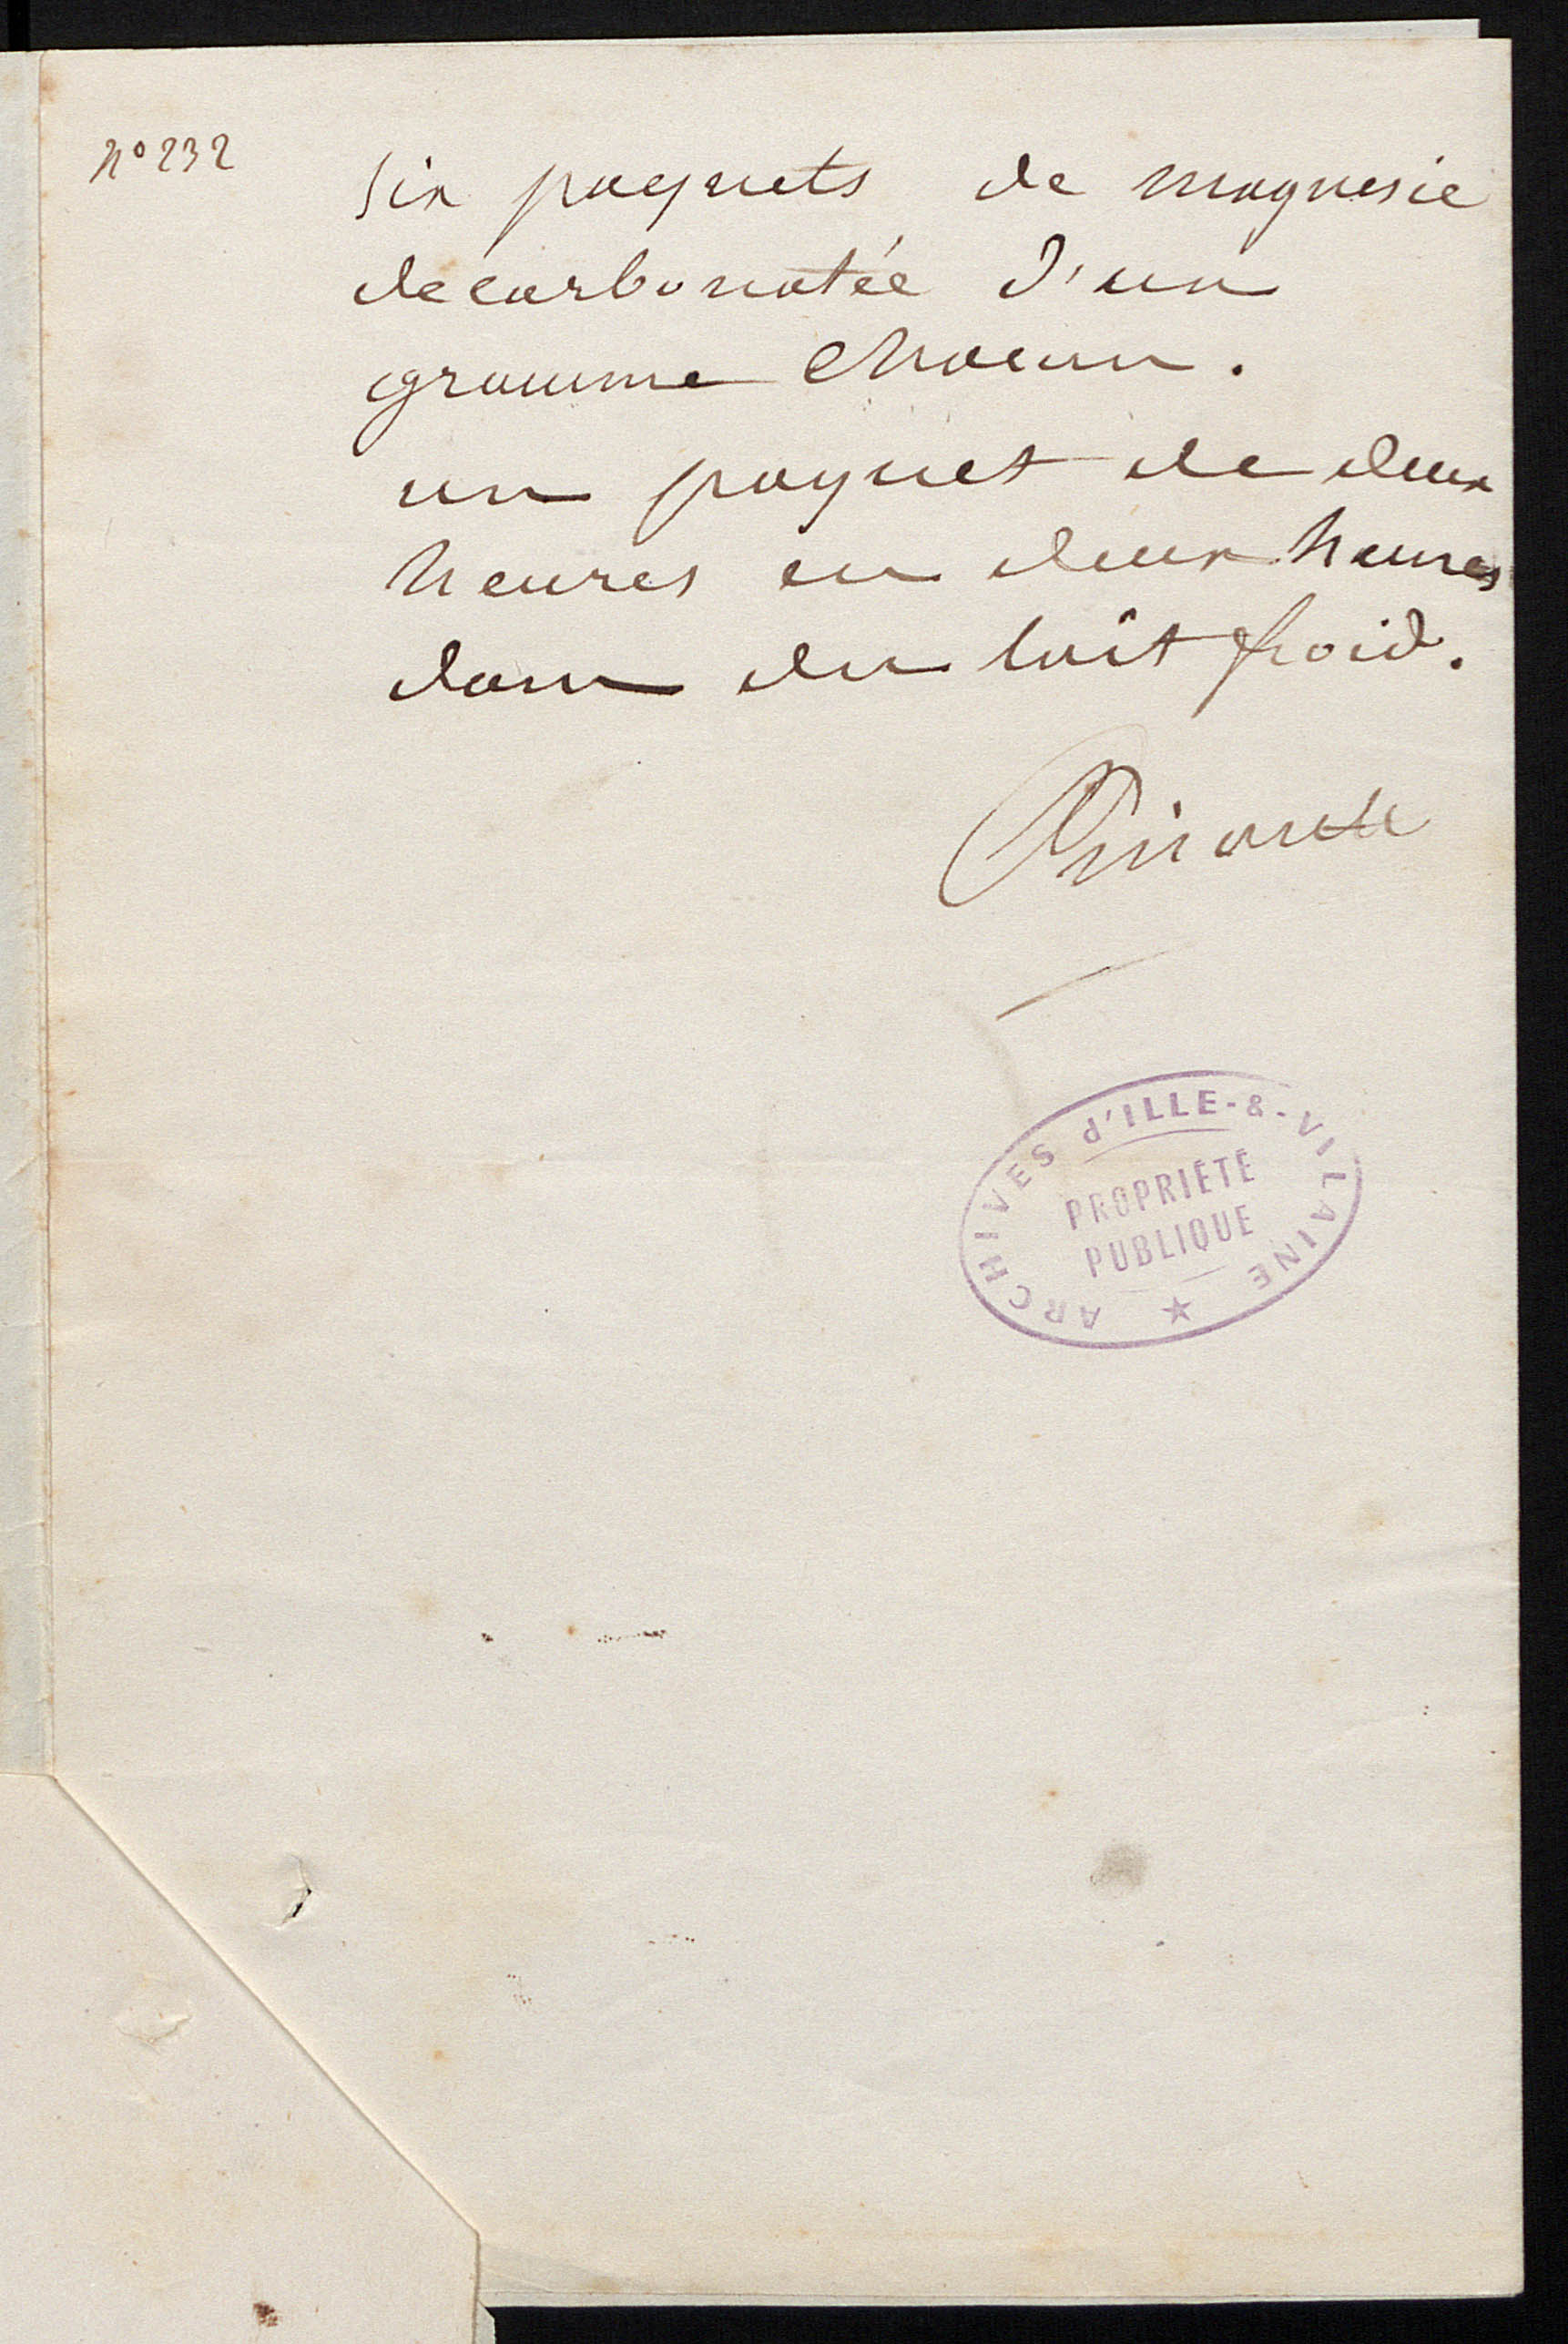 N° 232
six paquets de magnesie
decarbonatée d'un
gramme chacun.
un paquet de deux
heures en deux heures
dans du laît froid.
ARCHIVES d'ILLE-&-VILAINE
PROPRIÉTÉ
PUBLIQUE